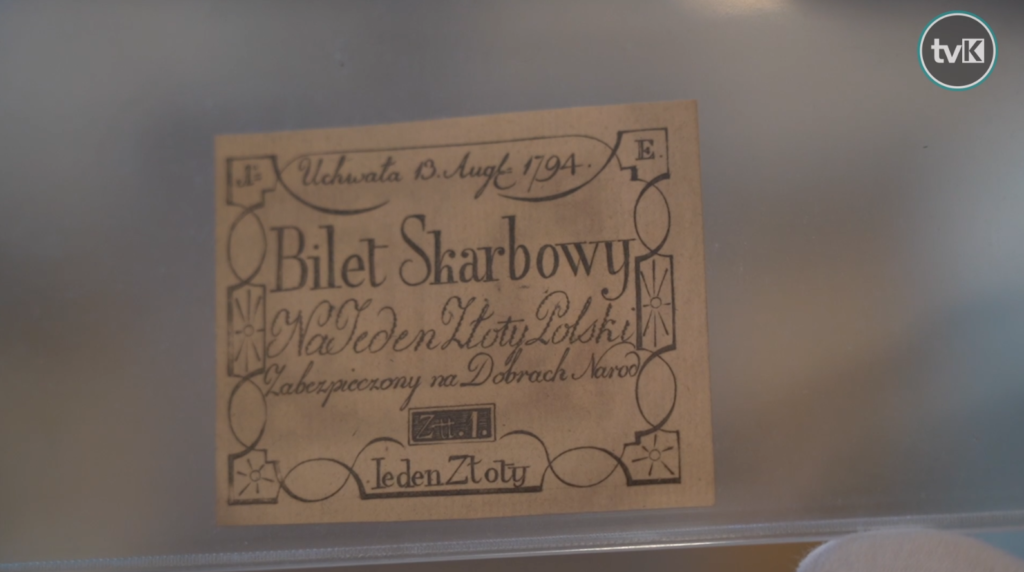 tvK
I. E.
Uchwała 13. Augt. 1794.
Bilet Skarbowy
Na Ieden Złoty Polski
Zabezpieczony na Dobrach Narod
Złł. 1.
Ieden Złoty